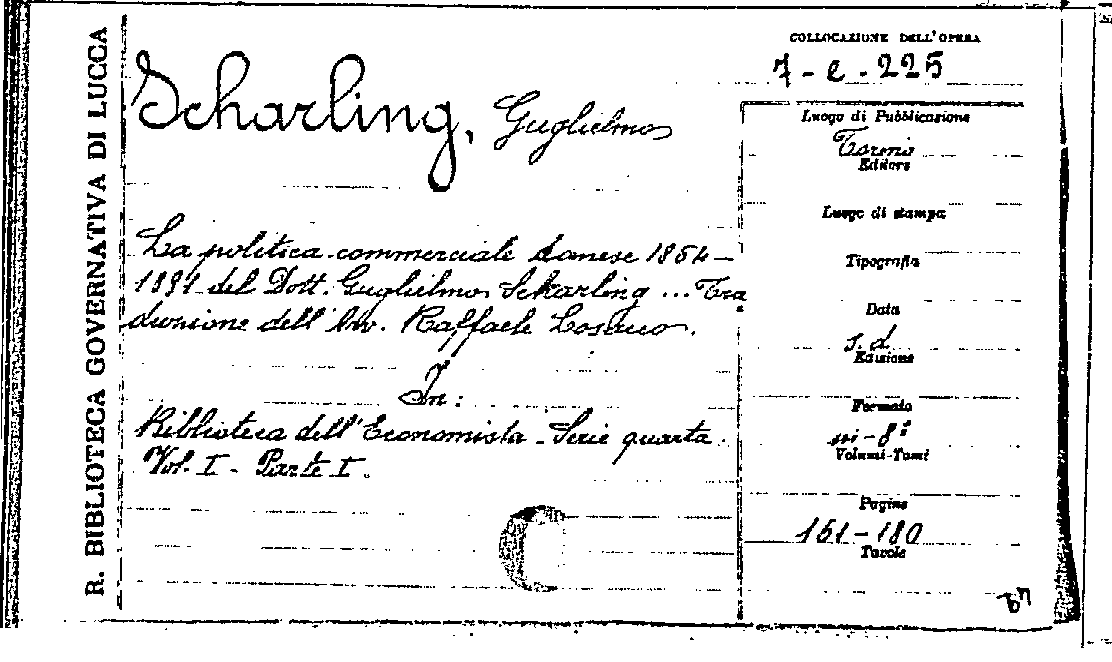 R. BIBLIOTECA GOVERNATIVA DI LUCCA
Scharling, Guglielmo
La politica commerciale danese 1864-
1891 del Dott. Guglielmo Scharling ... Tra
duzione dell'Avv. Raffaele Losacco.
In:
Biblioteca dell'Economista - Serie quarta.
Vol. I - Parte I.
COLLOCAZIONE DELL'OPERA
7-e-225
Luogo di Pubblicazione
Torino
Editore
Luogo di stampa
Tipografia
Data
s. d.
Edizione
Formato
in-8°
Volumi-Tomi
Pagine
151-180
Tavole